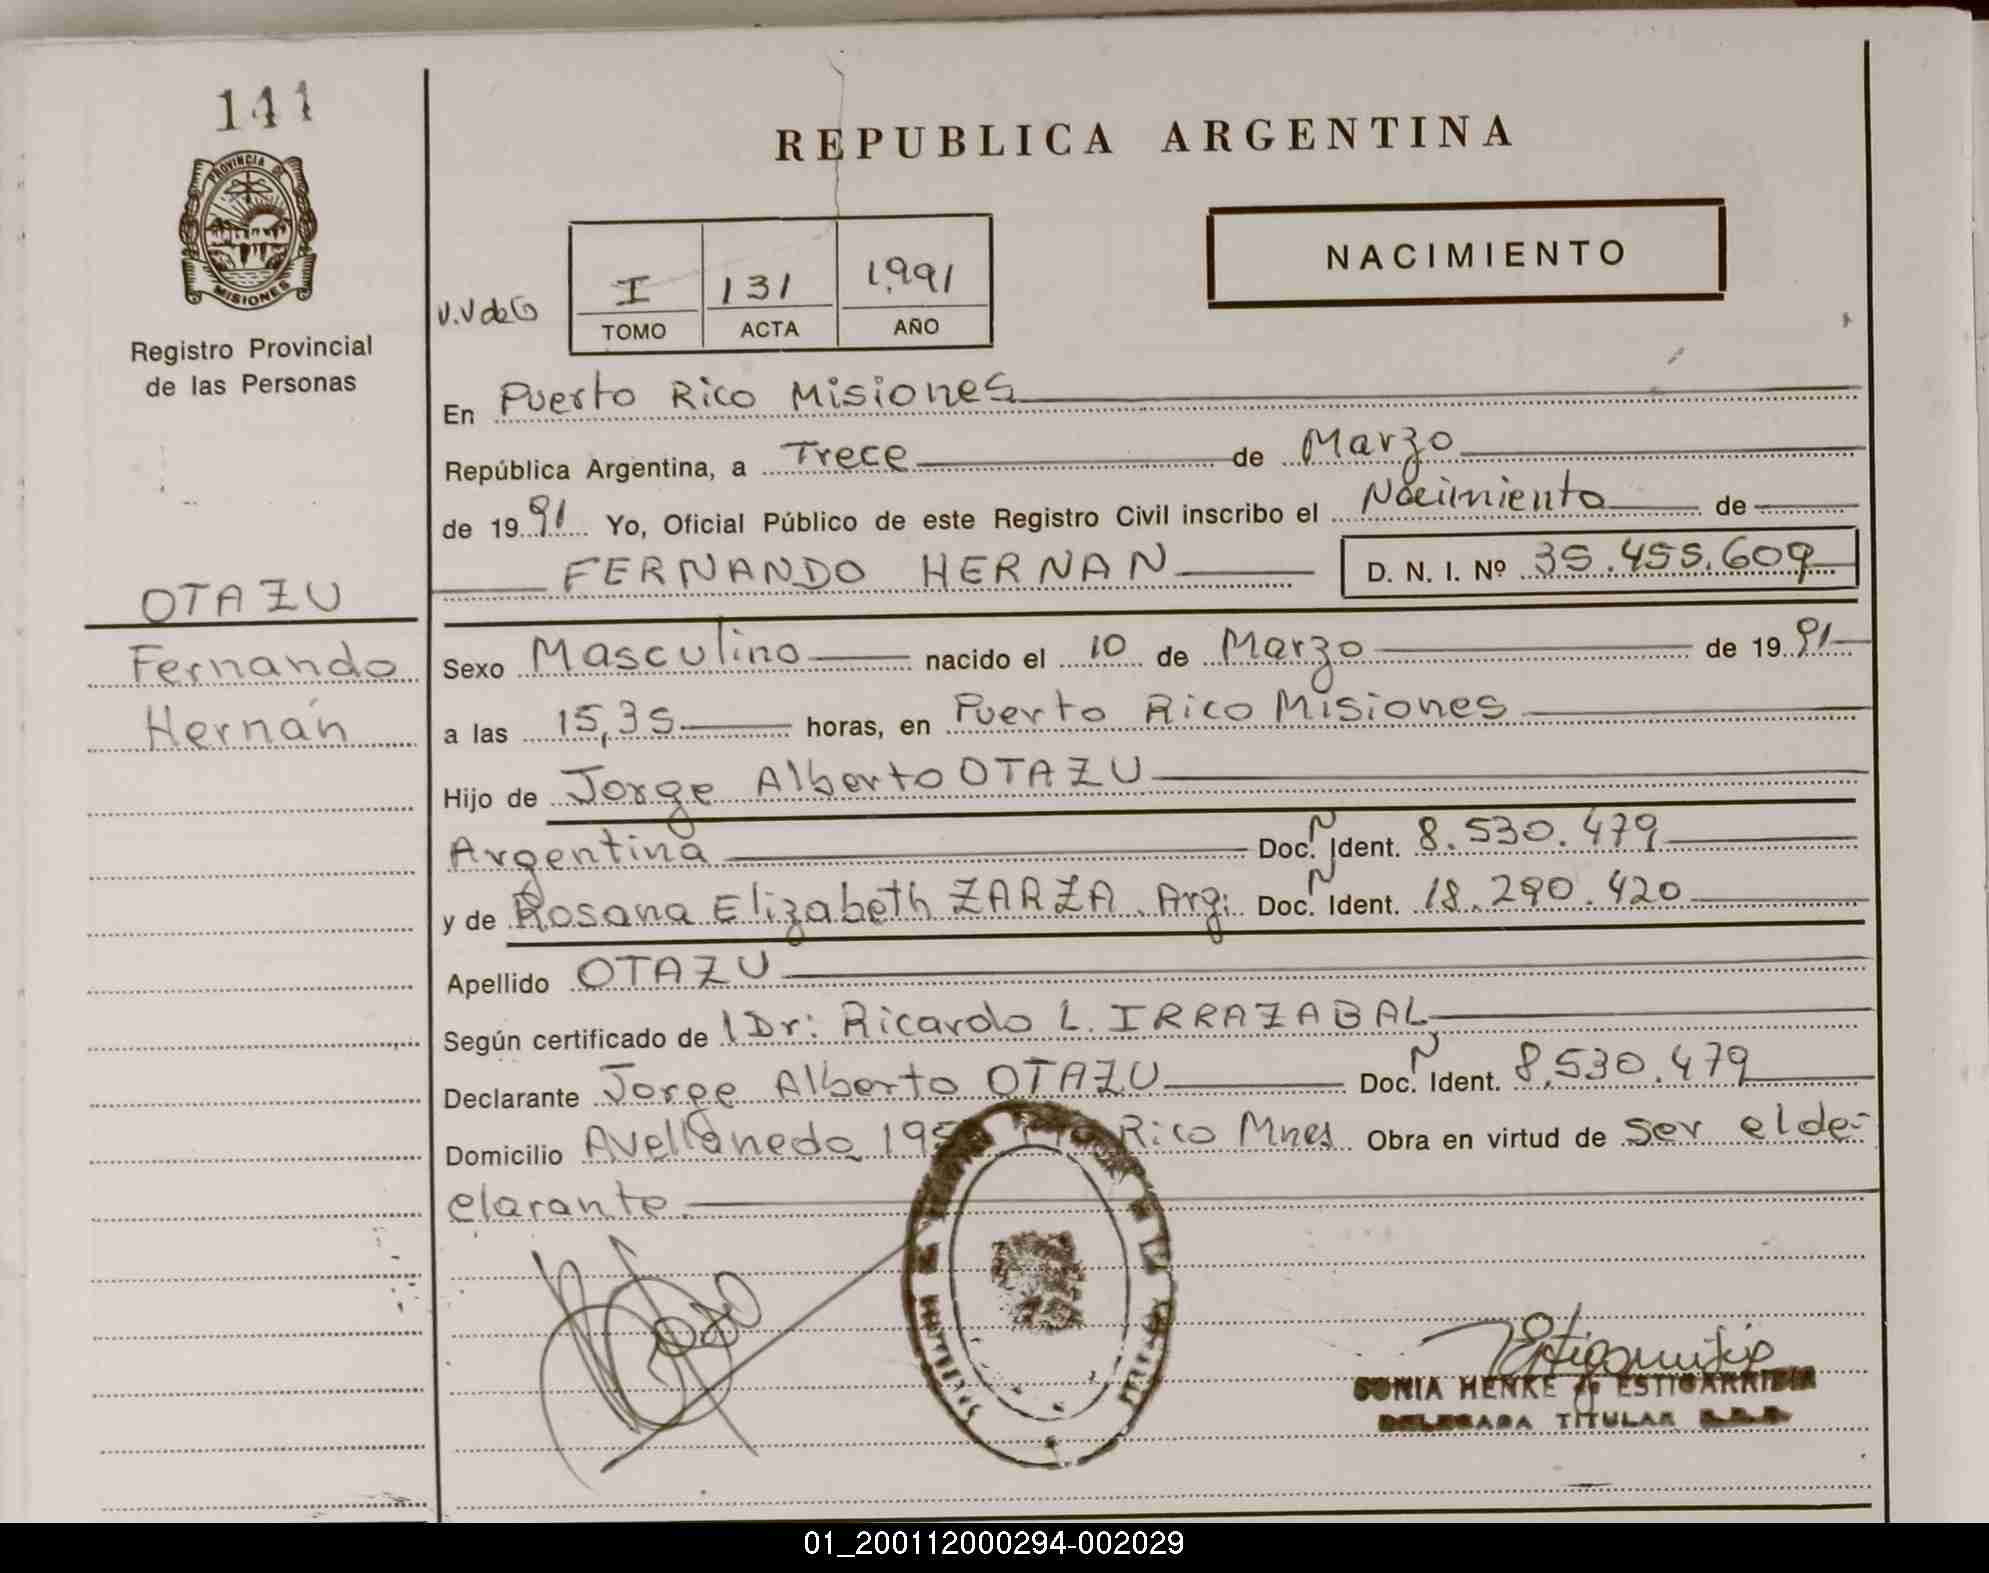 141
PROVINCIA DE
MISIONES
Registro Provincial
de las Personas
OTAZU
Fernando
Hernán
REPUBLICA ARGENTINA
NACIMIENTO
I 131 1.991
TOMO ACTA AÑO
En Puerto Rico Misiones
República Argentina, a Trece de Marzo
de 1991 Yo, Oficial Público de este Registro Civil inscribo el Nacimiento de
FERNANDO HERNAN D. N. I. Nº 35.455.609
Sexo Masculino nacido el 10 de Marzo de 1991
a las 15,35 horas, en Puerto Rico Misiones
Hijo de Jorge Alberto OTAZU
Argentina Doc. N Ident. 8.530.479
y de Rosana Elizabeth ZARZA. Arg: Doc. N Ident. 18.290.420
Apellido OTAZU
Según certificado de l Dr: Ricardo L. IRRAZABAL
Declarante Jorge Alberto OTAZU Doc. N Ident. 8.530.479
Domicilio Avellaneda Rico Mnes Obra en virtud de ser el de-
clarante
SONIA HENKE de ESTIGARRIBIA
DELEGADA TITULAR
01_200112000294-002029